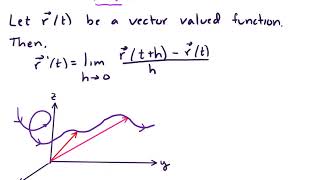 Let r⃗(t) be a vector valued function.
Then,
r⃗'(t) = lim h→0 r⃗(t+h) - r⃗(t) / h
z
y